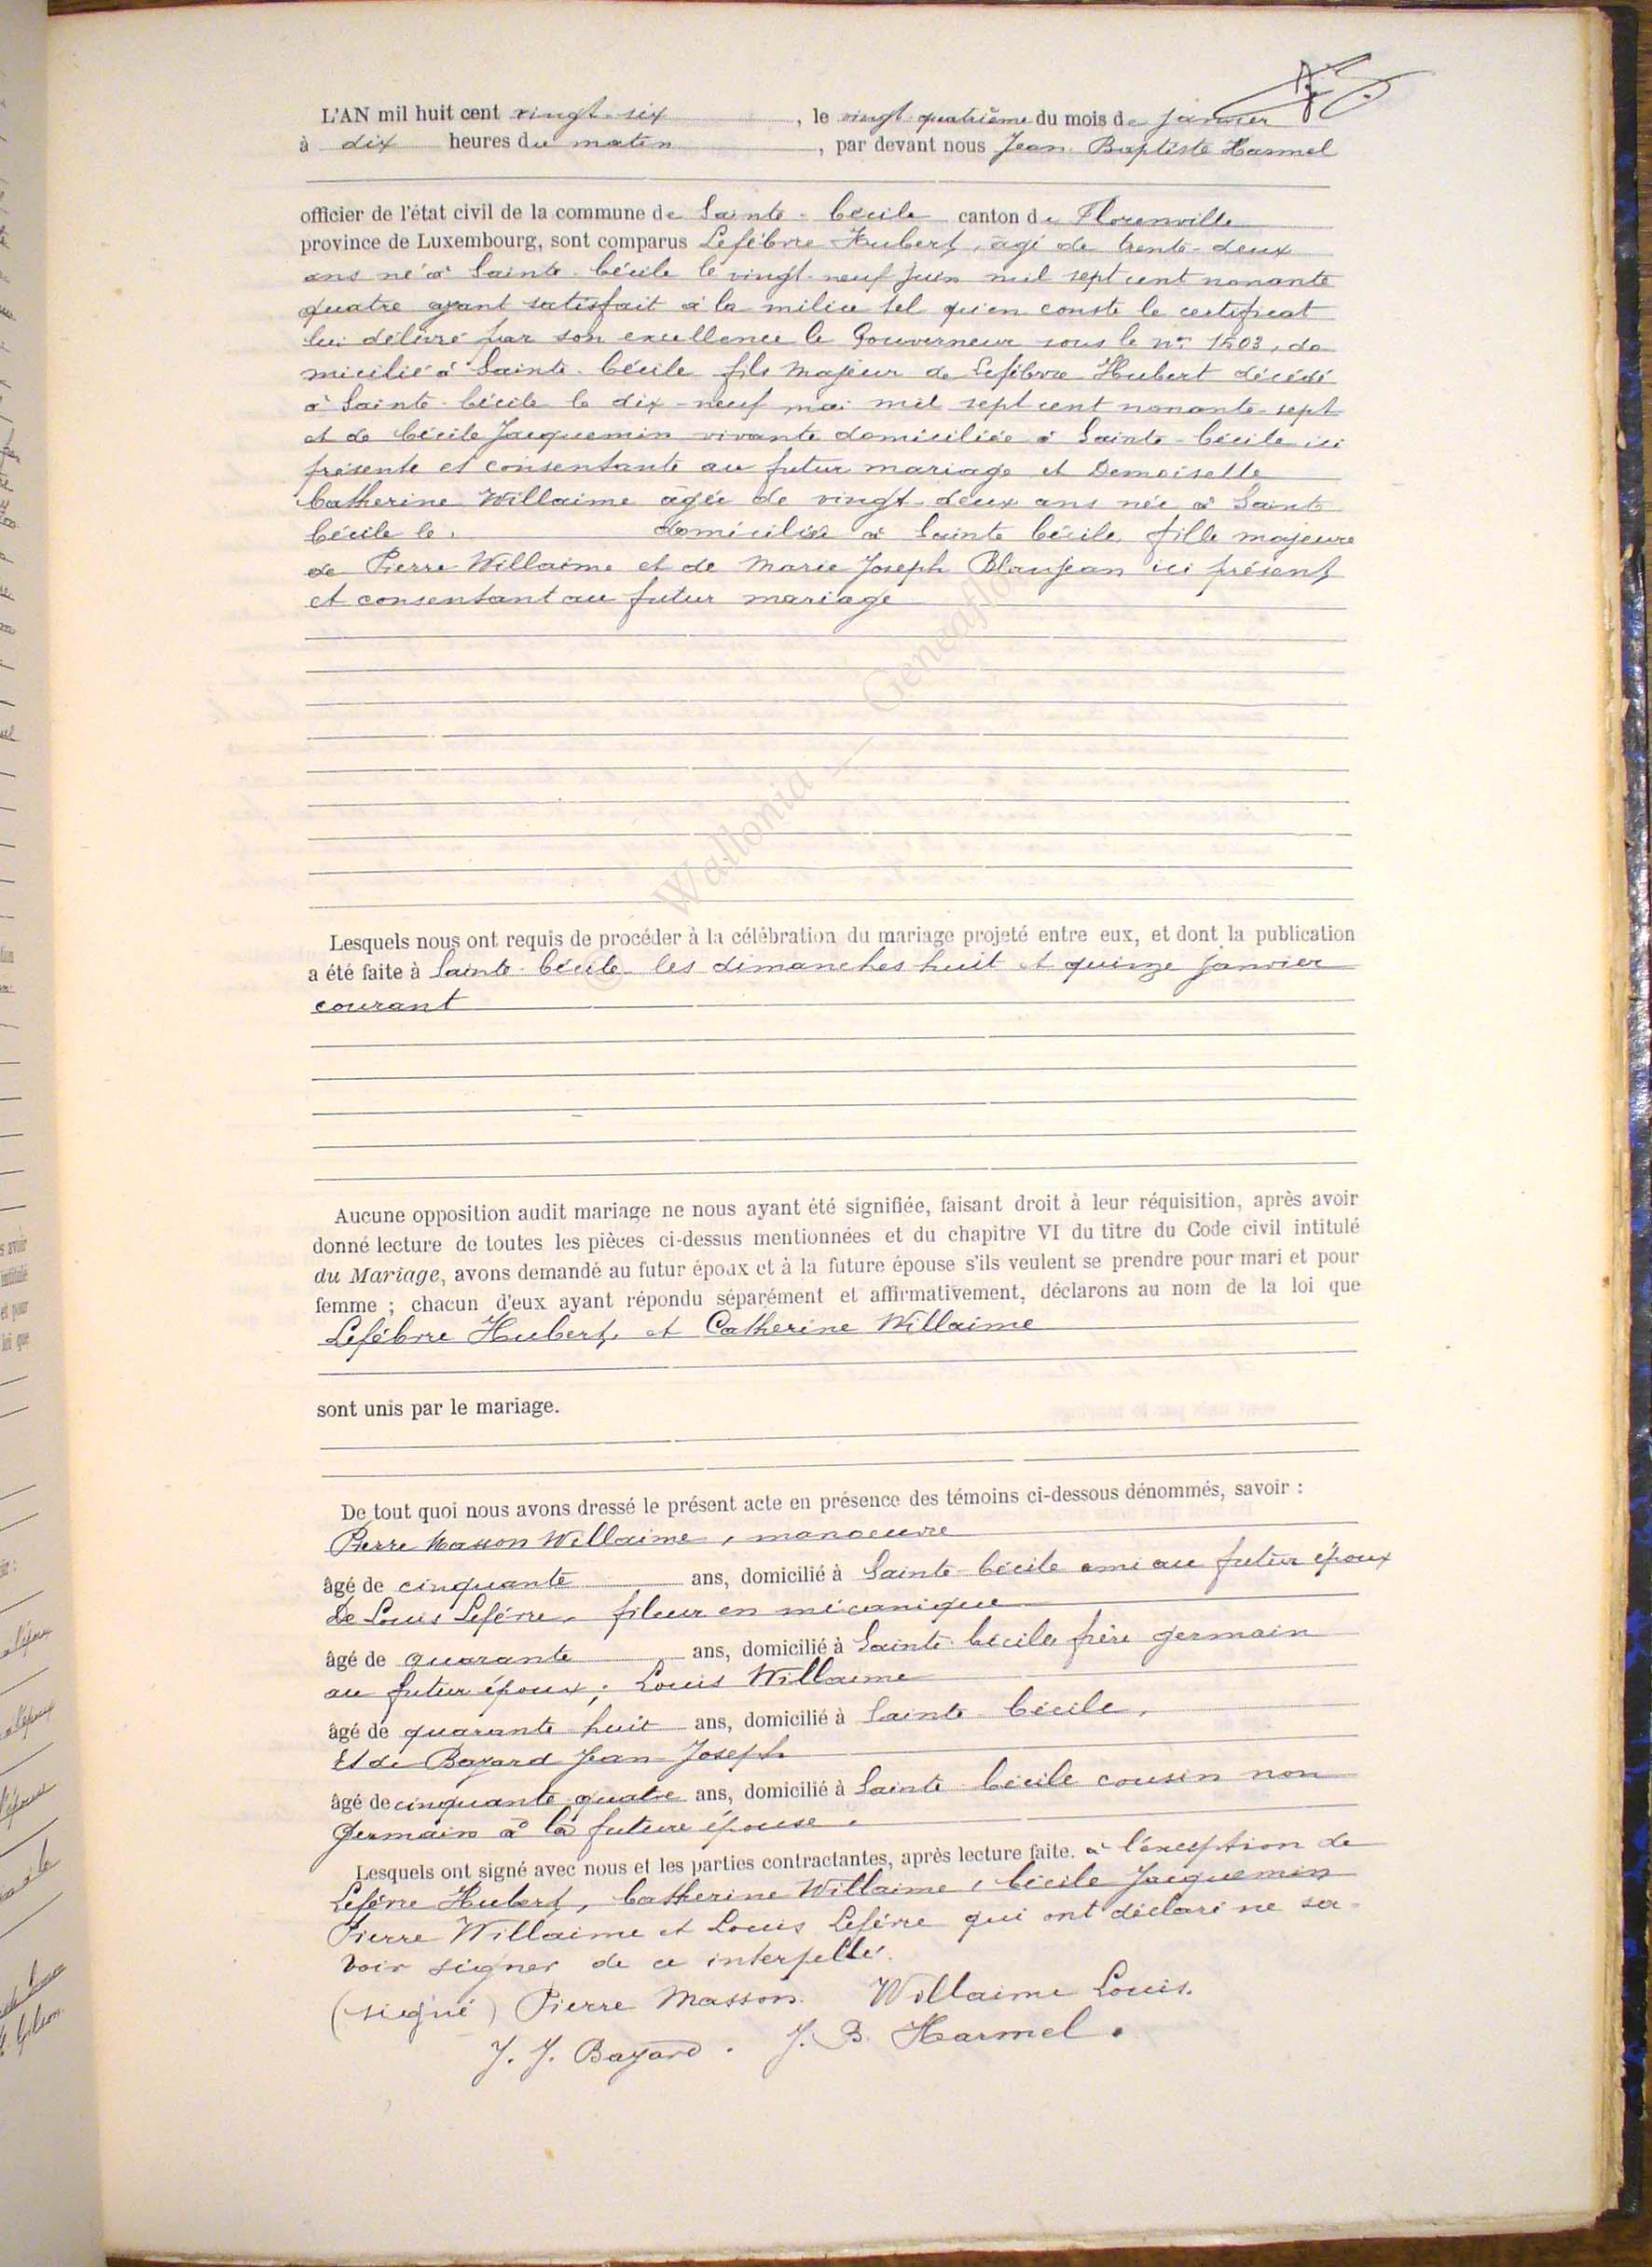 L'AN mil huit cent vingt-six , le vingt-quatrième du mois de janvier
à dix heures du matin , par devant nous Jean Baptiste Harmel
officier de l'état civil de la commune de Sainte-Cécile canton de Florenville
province de Luxembourg, sont comparus Lefébvre Hubert, âgé de trente-deux
ans né à Sainte-Cécile le vingt-neuf juin mil sept cent nonante
quatre ayant satisfait à la milice tel qu'en conste le certificat
lui délivré par son excellence le Gouverneur sous le n° 1503, do
micilié à Sainte-Cécile fils majeur de Lefébvre Hubert décédé
à Sainte-Cécile le dix-neuf mai mil sept cent nonante-sept
et de Cécile Jacquemin vivante domiciliée à Sainte-Cécile ici
présente et consentante au futur mariage et Demoiselle
Catherine Willaime âgée de vingt-deux ans née à Sainte
Cécile le. domiciliée à Sainte Cécile, fille majeure
de Pierre Willaime et de Marie Joseph Blaujean ici présent
et consentant au futur mariage
© Wallonia — Geneafo
Lesquels nous ont requis de procéder à la célébration du mariage projeté entre eux, et dont la publication
a été faite à Sainte-Cécile les dimanches huit et quinze janvier
courant
Aucune opposition audit mariage ne nous ayant été signifiée, faisant droit à leur réquisition, après avoir
donné lecture de toutes les pièces ci-dessus mentionnées et du chapitre VI du titre du Code civil intitulé
du Mariage, avons demandé au futur époux et à la future épouse s'ils veulent se prendre pour mari et pour
femme ; chacun d'eux ayant répondu séparément et affirmativement, déclarons au nom de la loi que
Lefébvre Hubert, et Catherine Willaime
sont unis par le mariage.
De tout quoi nous avons dressé le présent acte en présence des témoins ci-dessous dénommés, savoir :
Pierre Masson Willaime, manoeuvre
âgé de cinquante ans, domicilié à Sainte-Cécile ami au futur époux
De Louis Lefévre, fileur en mécanique
âgé de quarante ans, domicilié à Sainte-Cécile, frère germain
au futur époux; Louis Willaime
âgé de quarante-huit ans, domicilié à Sainte-Cécile,
Et de Bayard Jean-Joseph
âgé de cinquante-quatre ans, domicilié à Sainte-Cécile cousin non
germain à la future épouse.
Lesquels ont signé avec nous et les parties contractantes, après lecture faite. à l'exception de
Lefévre Hubert, Catherine Willaime, Cécile Jacquemin
Pierre Willaime et Louis Lefévre qui ont déclaré ne sa-
voir signer de ce interpellés.
(signé) Pierre Masson. Willaime Louis.
J. J. Bayard. J. B. Harmel.